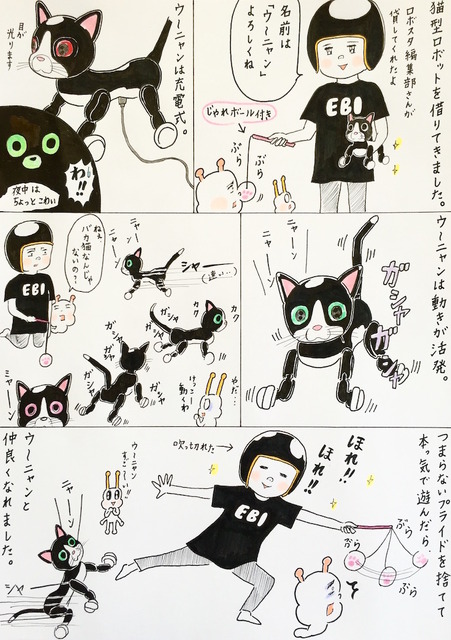 猫型ロボットを借りてきました。
ロボスタ編集部さんが
貸してくれたよ
名前は
「ウーニャン」
よろしくね
EBI
じゃれボール付き
ぶら
ぶら
ウーニャンは充電式。
目が
光ります
わ!!
夜中は
ちょっとこわい
ウーニャンは動きが活発。
ニャーン
ニャーン
ガシャ
ガシャ
ニャーン
ニャーン
シャー
(速い…)
ねぇ
バカ猫なんじゃ
ないの?
EBI
カク
カク
ガシャ
ガシャ
ガシャ
ガシャ
やだ…
けっこー
動くわ
ミャーン
つまらないプライドを捨てて
本っ気で遊んだら
ほれ!!
ほれ!!
吹っ切れた→
EBI
ぶら
ぶら
ぶら
そっ
ウーニャン
すごーい!!
ニャーン
シャ
ウーニャンと
仲良くなれました。